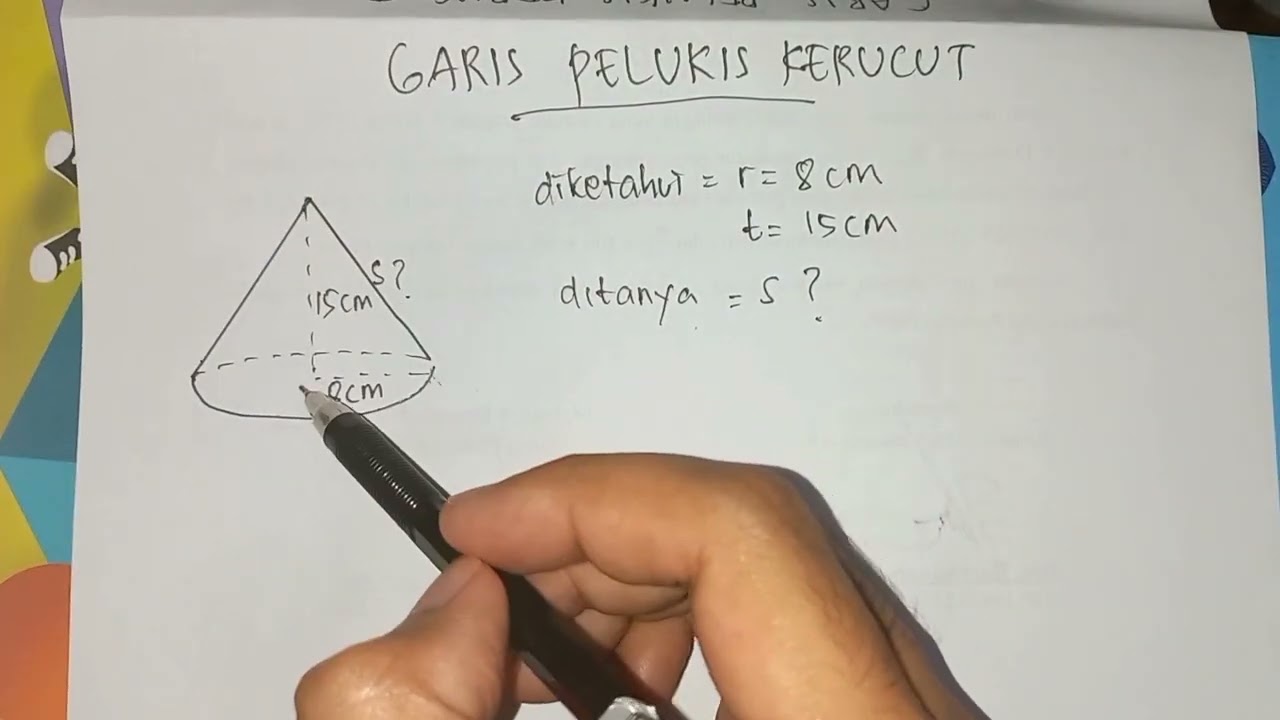 GARIS PELUKIS KERUCUT
diketahui = r = 8 cm
t = 15 cm
ditanya = s ?
s?
15cm
8cm